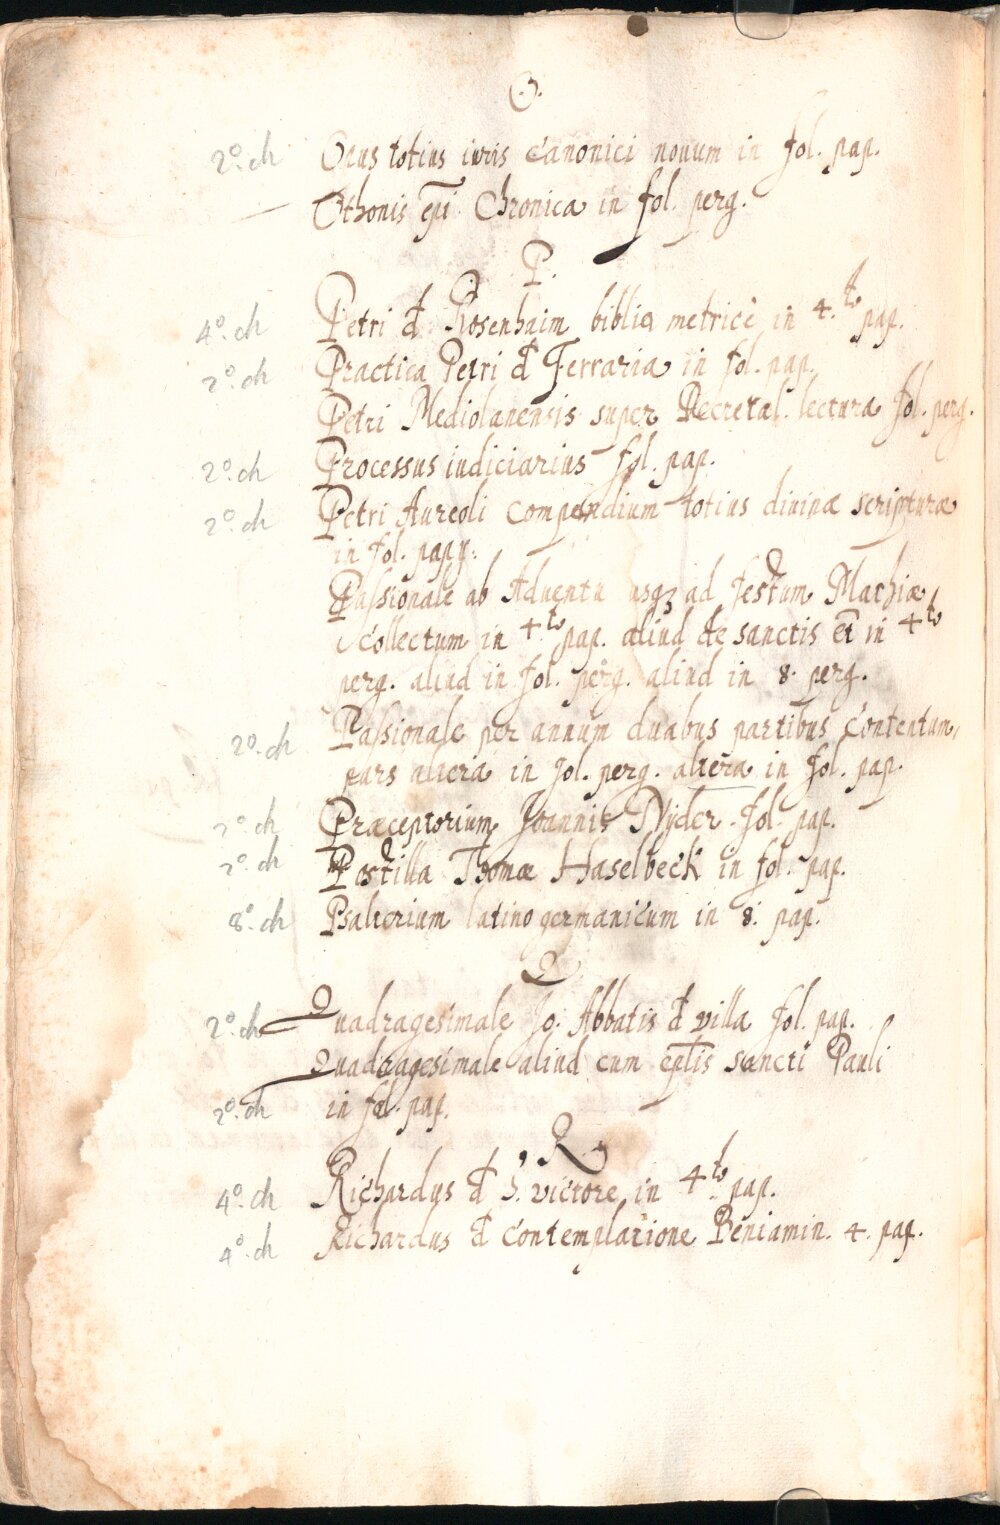 .O.
2º. ch Opus totius iuris Canonici nouum in fol. pap.
— Othonis ep̄i Chronica in fol. perg.
P.
4º. ch Petri đ Rosenhaim biblia metricè in 4.to pap.
2º. ch Practica Petri đ Ferraria in fol. pap.
Petri Mediolanensis super Decretal. lectura fol. perg.
2º. ch Processus iudiciarius fol. pap.
2º. ch Petri Aureoli Compendium totius diuinæ scripturæ
in fol. papy.
Passionale ab Aduentu usq3 ad festum Mathiæ
Collectum in 4.to pap. aliud de sanctis et in 4to
perg. aliud in fol. perg. aliud in 8. perg.
2º. ch Passionale per annum duabus partibus Contentum,
pars altera in fol. perg. altera in fol. pap.
2º. ch Præceptorium Joannis Nyder fol. pap.
2º. ch Postilla Thomæ Haselbeck in fol. pap.
8º. ch Psalterium latino germanicum in 8. pap.
Q
2º. ch Quadragesimale Jo. Abbatis đ villa fol. pap.
Quadragesimale aliud cum ep̄lis sancti Pauli
2º. ch in fol. pap.
R
4º. ch Richardus đ S. victore in 4to pap.
4º. ch Richardus đ Contemplatione Beniamin. 4. pap.